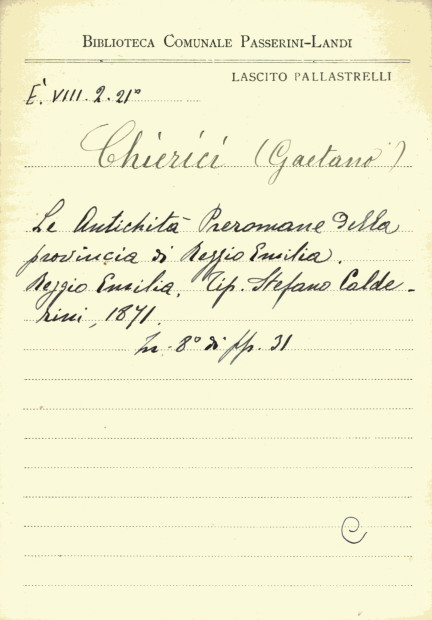 BIBLIOTECA COMUNALE PASSERINI-LANDI
LASCITO PALLASTRELLI
E. VIII. 2. 21°
Chierici (Gaetano)
Le Antichità Preromane della
provincia di Reggio Emilia.
Reggio Emilia, Tip. Stefano Calde-
rini, 1871.
In-8° di pp. 31
C